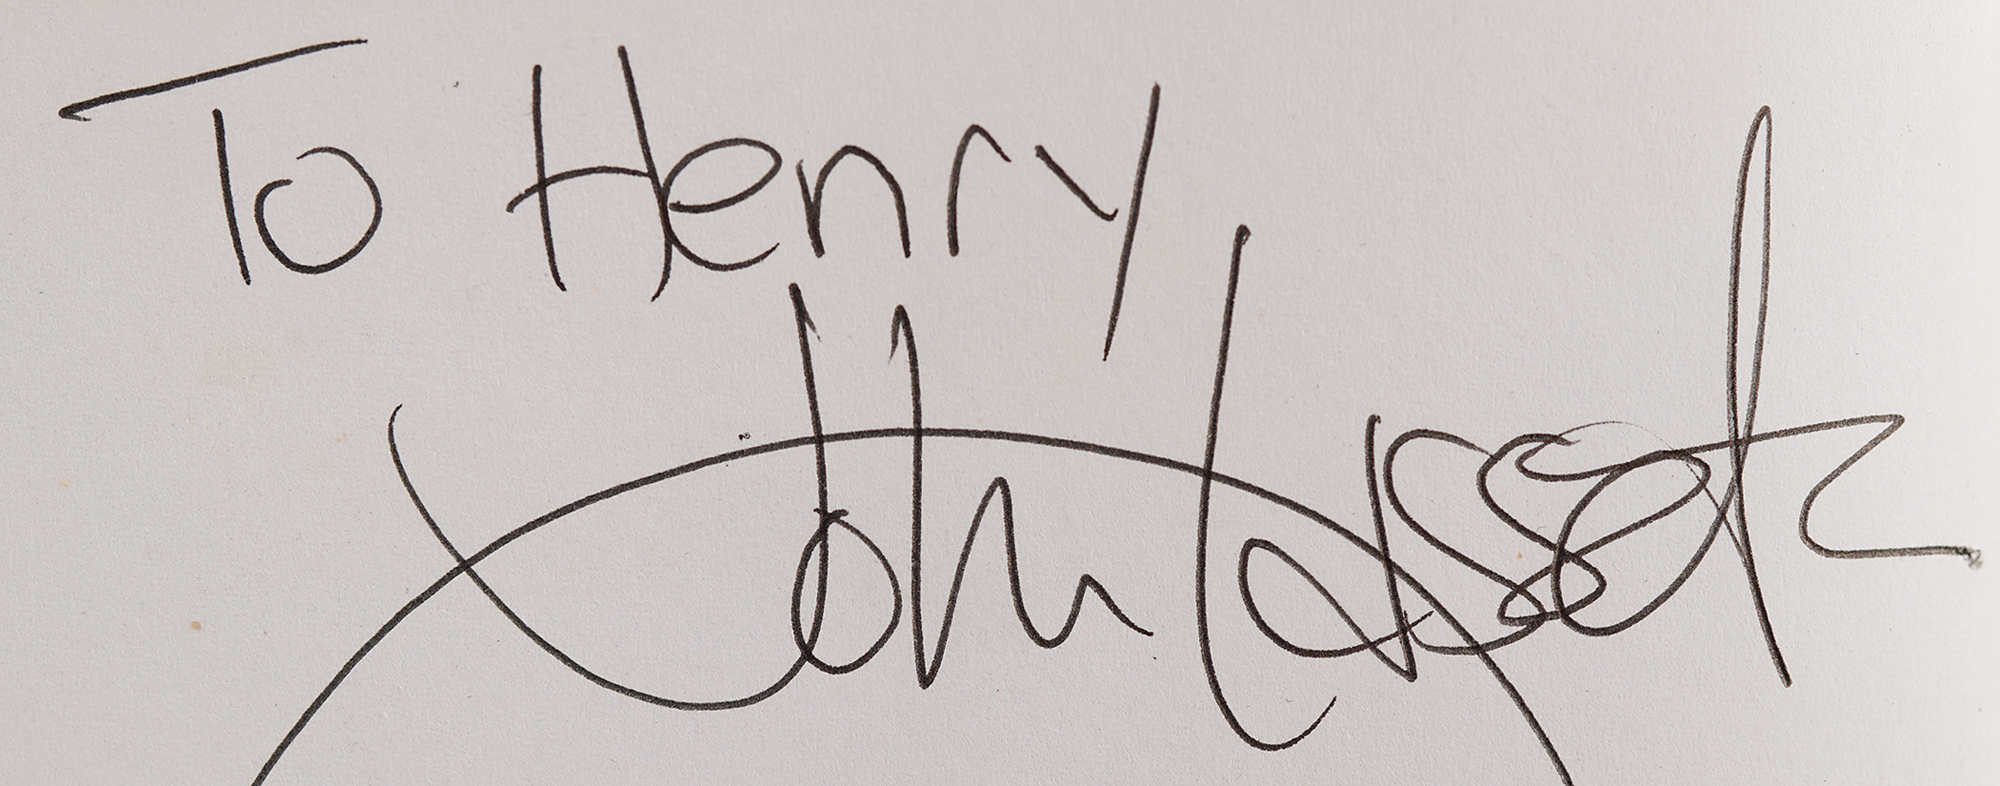 To Henry
John Lasseter